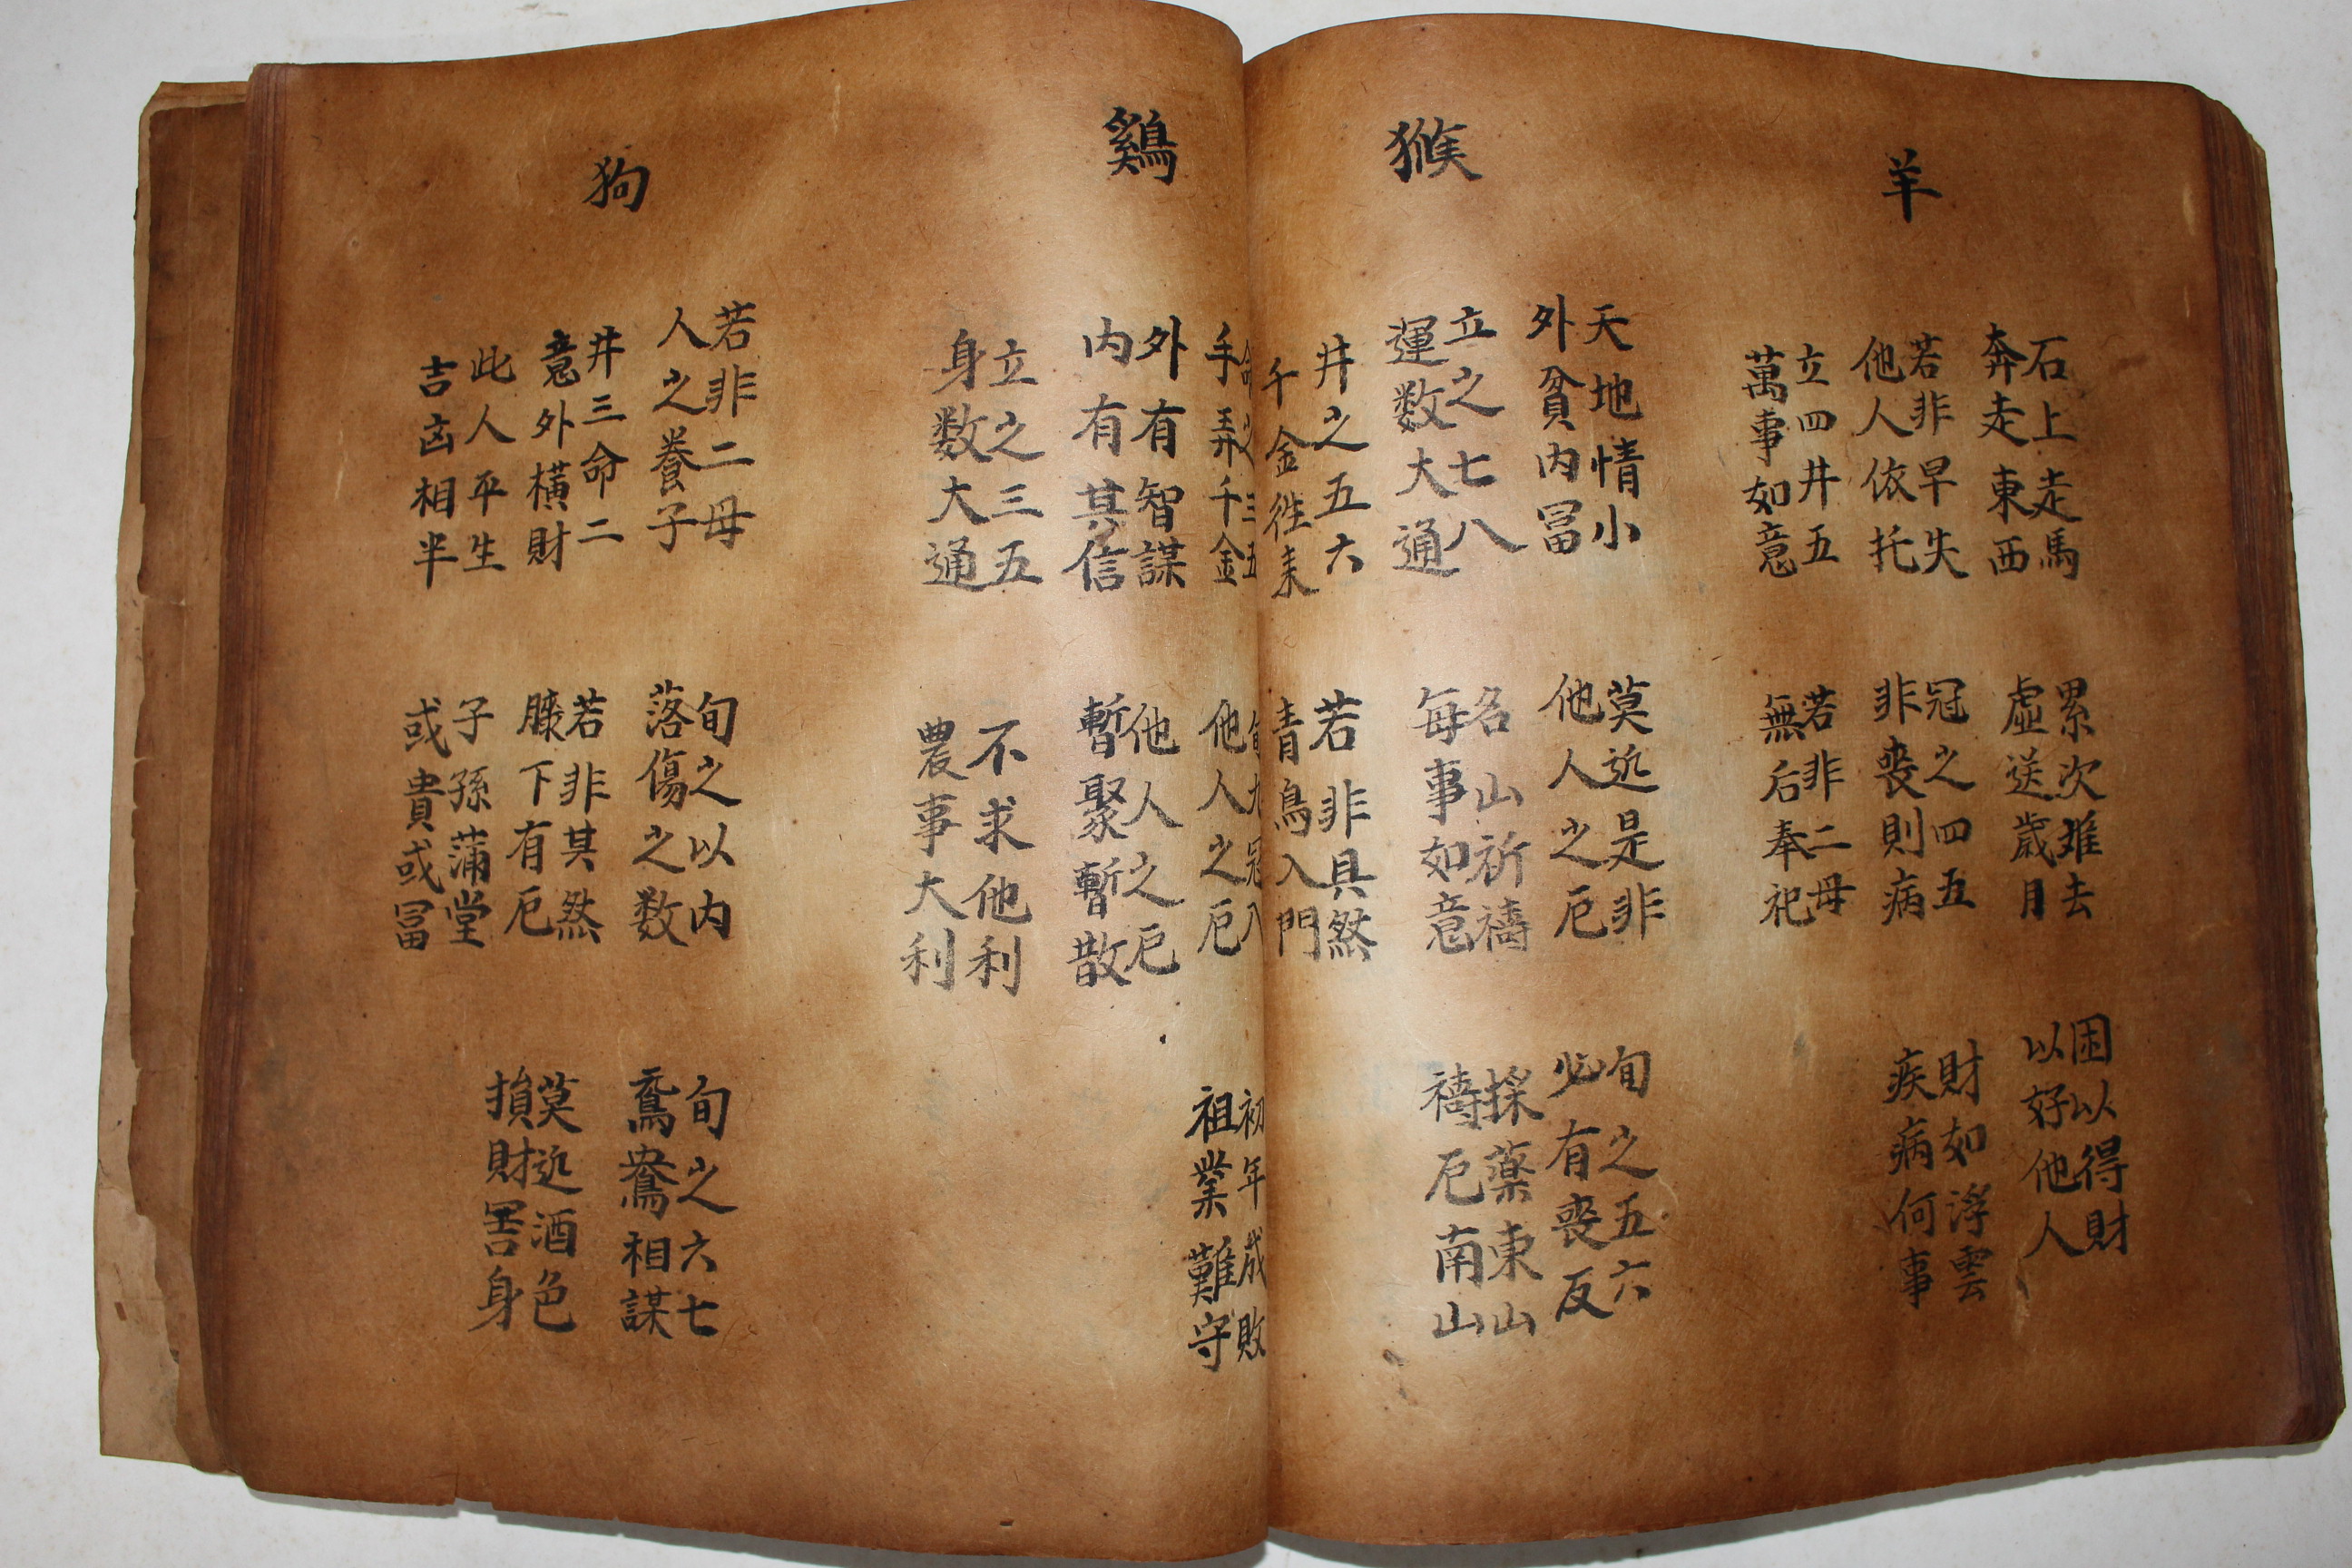 羊
石上走馬
奔走東西
累次难去
虛送歲月
困以得財
以好他人
若非早失
他人依托
冠之四五
非丧則病
財如浮雲
疾病何事
立四井五
萬事如意
若非二母
無后奉祀
猴
天地情小
外貧内冨
莫近是非
他人之厄
旬之五六
必有丧反
立之七八
運数大通
名山祈禱
每事如意
採藥東山
禱厄南山
井之五六
千金徃来
若非具然
青鳥入門
鷄
命之三五
手弄千金
旬九冠八
他人之厄
初年成敗
祖業難守
外有智謀
内有其信
他人之厄
暫聚暫散
立之三五
身数大通
不求他利
農事大利
狗
若非二母
人之養子
旬之以内
落傷之数
旬之六七
鴛鴦相謀
井三命二
意外橫財
若非其然
膝下有厄
莫近酒色
損財害身
此人平生
吉凶相半
子孫蒲堂
或貴或冨